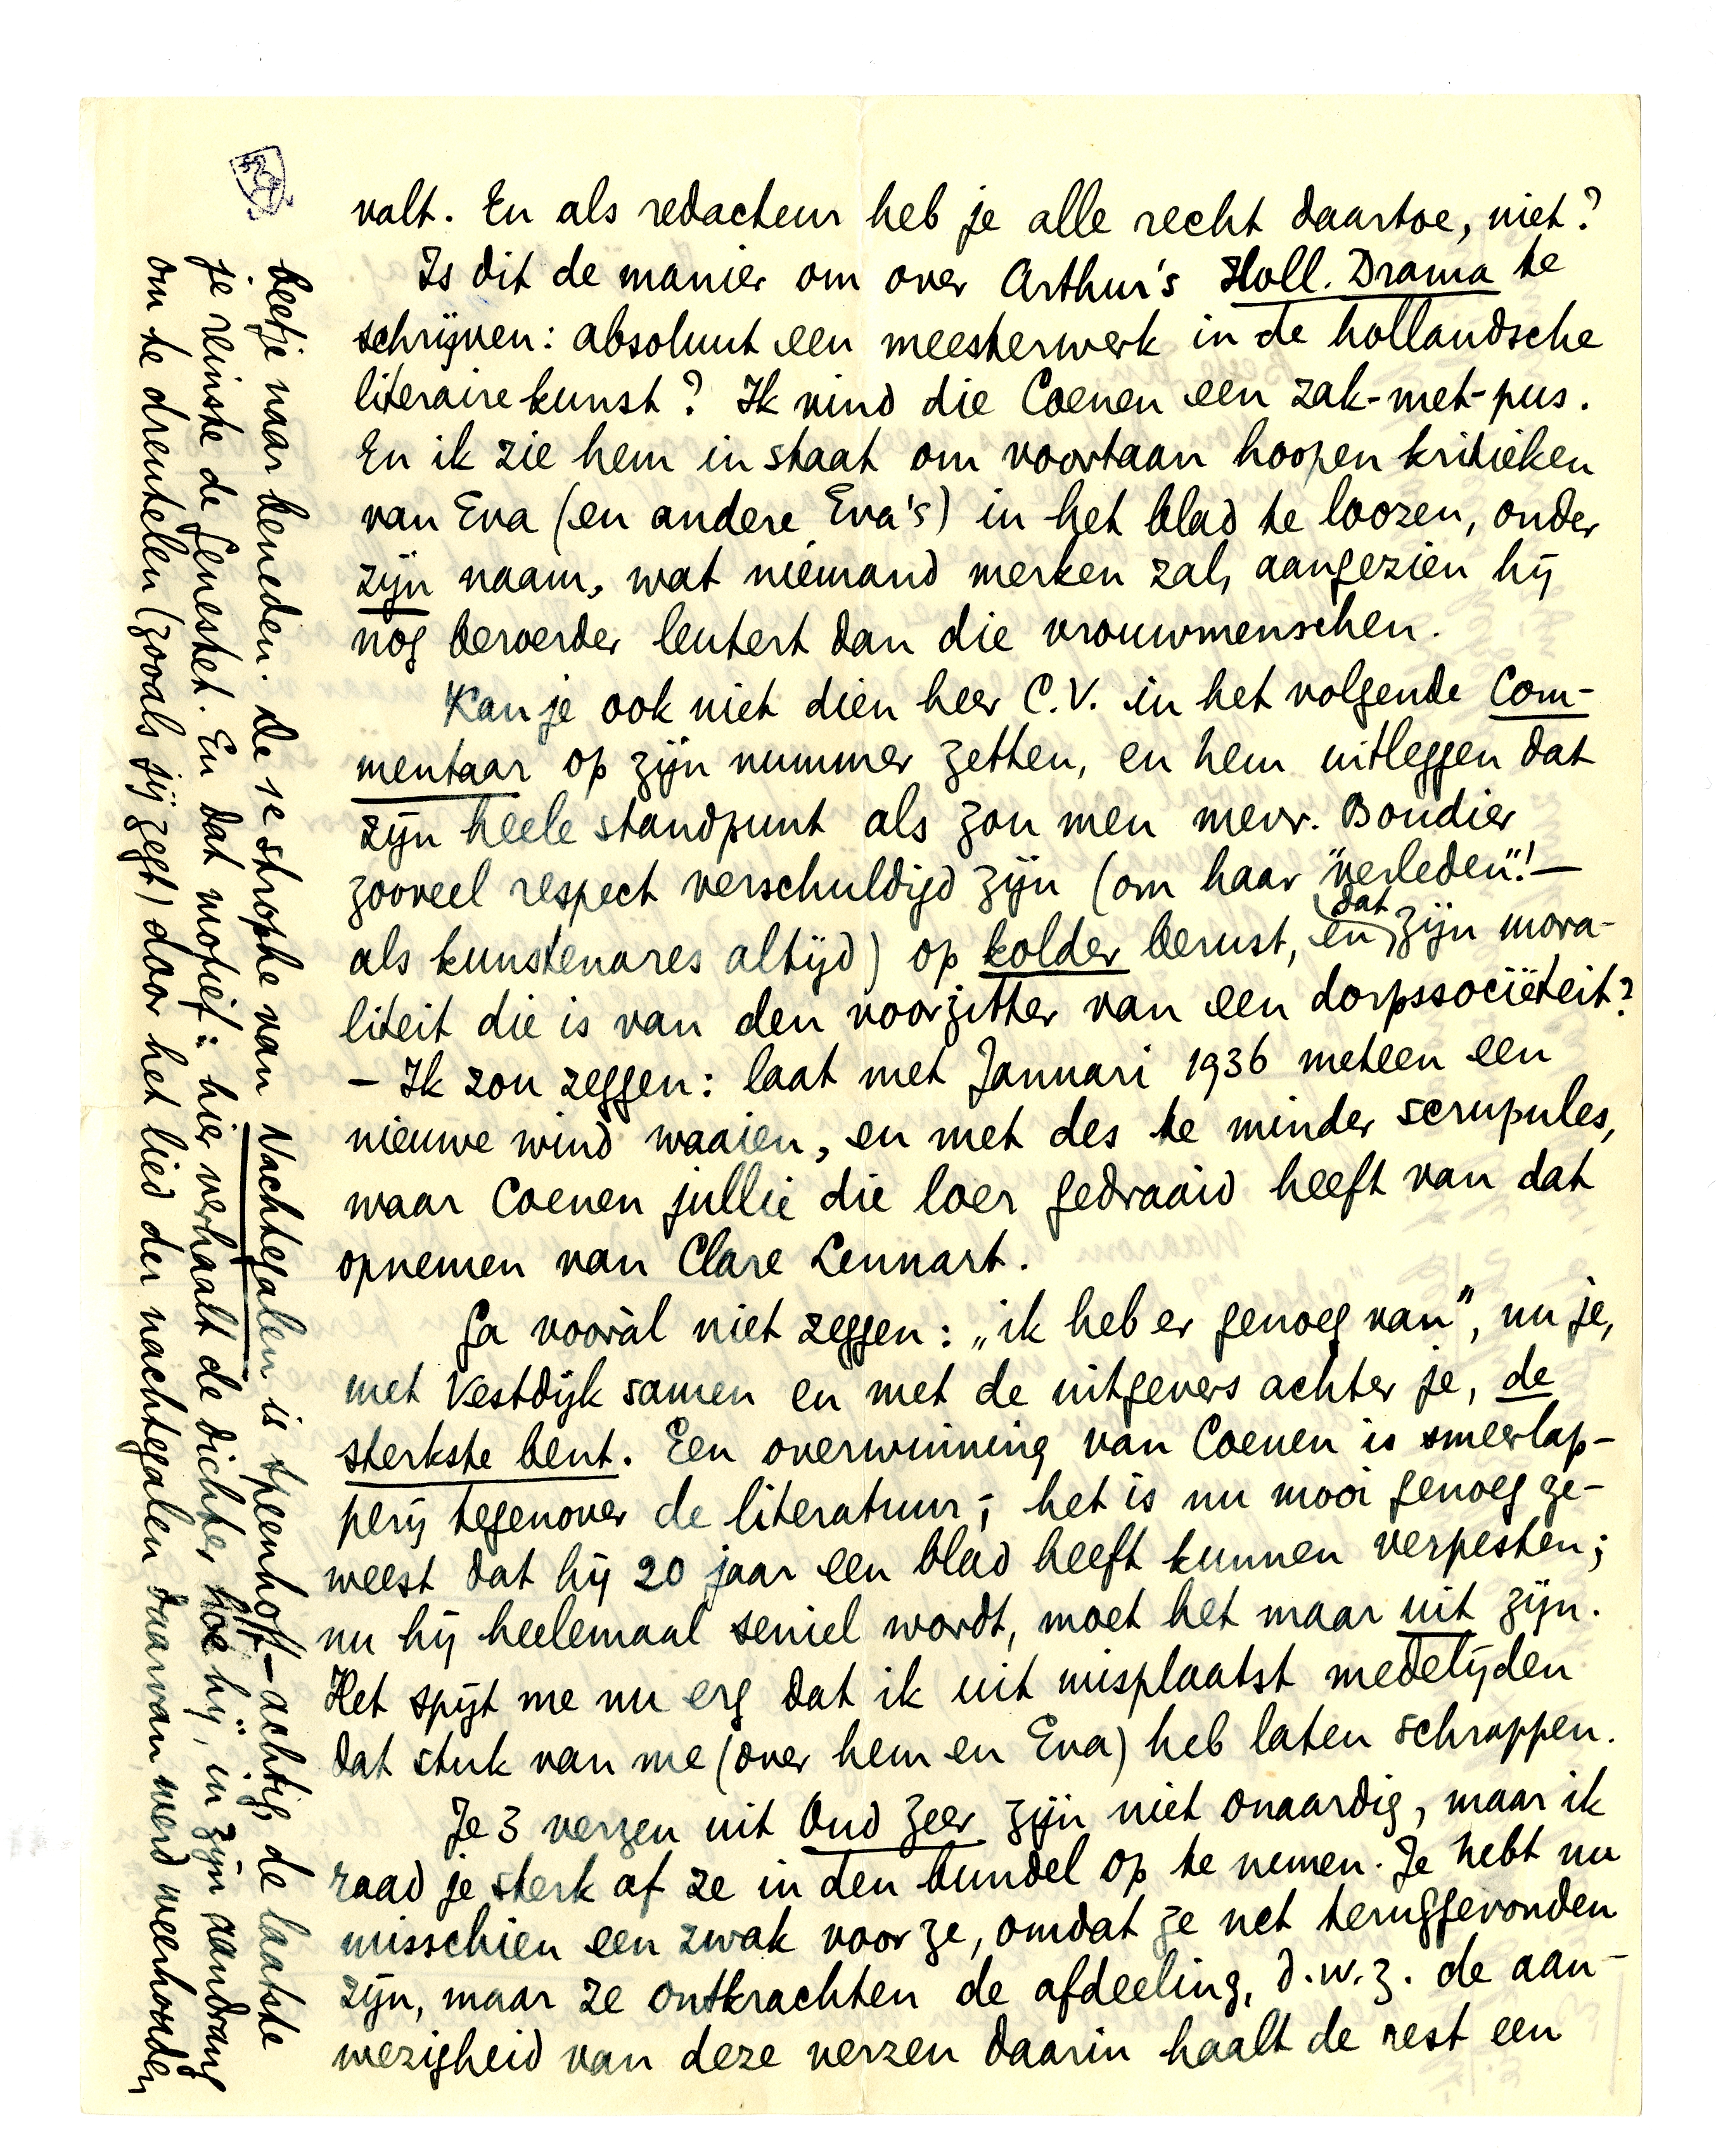 valt. En als redacteur heb je alle recht daartoe, niet?
Is dit de manier om over Arthur's Holl. Drama te
schrijven: absoluut een meesterwerk in de hollandsche
literaire kunst? Ik vind die Coenen een zak-met-pus.
En ik zie hem in staat om voortaan hoopen kritieken
van Eva (en andere Eva's) in het blad te loozen, onder
zijn naam, wat niemand merken zal, aangezien hij
nog beroerder leutert dan die vrouwmenschen.
Kan je ook niet dien heer C.V. in het volgende Com-
mentaar op zijn nummer zetten, en hem uitleggen dat
zijn heele standpunt als zou men mevr. Boudier
zooveel respect verschuldigd zijn (om haar "verleden"! –
als kunstenares altijd) op kolder berust, en dat zijn mora-
liteit die is van den voorzitter van een dorpssociëteit?
– Ik zou zeggen: laat met Januari 1936 meteen een
nieuwe wind waaien, en met des te minder scrupules,
waar Coenen jullie die loer gedraaid heeft van dat
opnemen van Clare Lennart.
Ga vooràl niet zeggen: „ik heb er genoeg van", nu je,
met Vestdijk samen en met de uitgevers achter je, de
sterkste bent. Een overwinning van Coenen is smeerlap-
perij tegenover de literatuur; het is nu mooi genoeg ge-
weest dat hij 20 jaar een blad heeft kunnen verpesten;
nu hij heelemaal seniel wordt, moet het maar uit zijn.
Het spijt me nu erg dat ik uit misplaatst medelijden
dat stuk van me (over hem en Eva) heb laten schrappen.
Je 3 verzen uit Oud Zeer zijn niet onaardig, maar ik
raad je sterk af ze in den bundel op te nemen. Je hebt nu
misschien een zwak voor ze, omdat ze net teruggevonden
zijn, maar ze ontkrachten de afdeeling, d.w.z. de aan-
wezigheid van deze verzen daarin haalt de rest een
beetje naar beneden. De 1e strophe van Nachtegalen is speenhoff-achtig, de laatste
je reinste de Genestet. En dat motief: hier verhaalt de dichter hoe hij, in zijn aandrang
om te drentelen (zooals jij zegt) door het lied der nachtegalen daarvan werd weerhouden